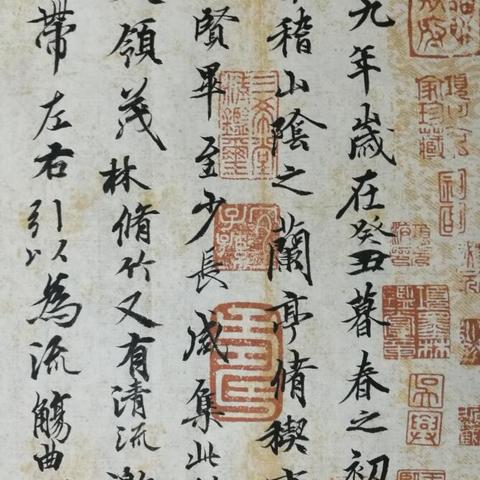 九年歲在癸丑暮春之初
稽山陰之蘭亭脩稧
賢畢至少長咸集此
領茂林脩竹又有清流激
帶左右引以為流觴曲